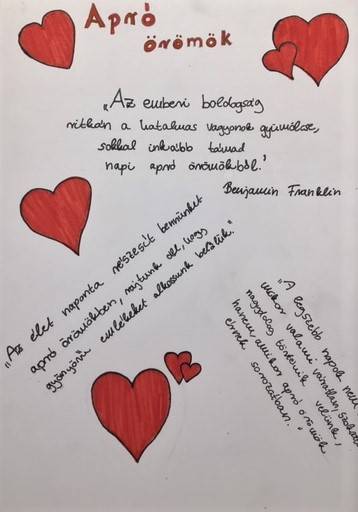 Apró
örömök
„Az emberi boldogság
ritkán a hatalmas vagyonok gyümölcse,
sokkal inkább támad
napi apró örömökből."
Benjamin Franklin
„Az élet naponta részesít bennünket
apró örömökben, rajtunk áll, hogy
gyönyörű emlékeket alkossunk belőlük."
„A legszebb napok nem
mikor valami váratlan,
nagydolog történik velünk,
hanem amikor apró örömök
érnek sorozatban."